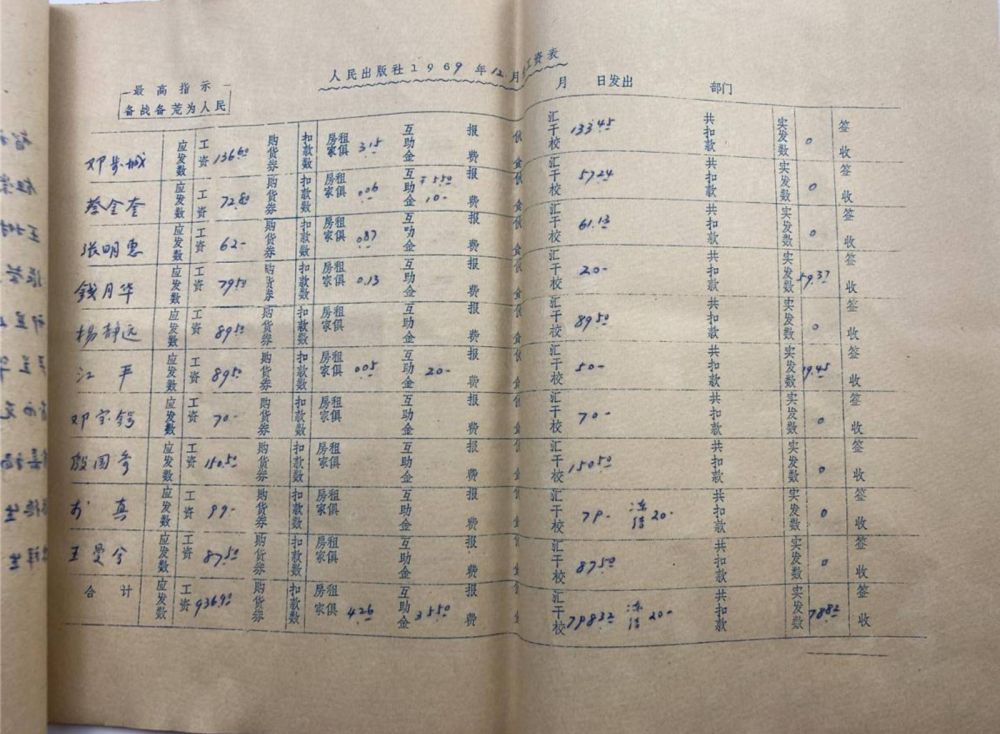 人民出版社1969年12月份工资表
最高指示
备战备荒为人民
月 日发出 部门
邓步城 应发数 工资 136.60 购货券 扣款数 房租家俱 3.15 互助金 报费 汇干校 133.45 共扣款 实发数 0 签收
应发数 工资 72.80 购货券 扣款数 房租家俱 .06 互助金 5.50 10.- 报费 汇干校 57.24 共扣款 实发数 0 签收
张明惠 应发数 工资 62- 购货券 扣款数 房租家俱 .87 互助金 报费 汇干校 61.13 共扣款 实发数 0 签收
錢月华 应发数 工资 79.50 购货券 扣款数 房租家俱 0.13 互助金 报费 汇干校 20- 共扣款 实发数 59.37 签收
杨静远 应发数 工资 89.50 购货券 扣款数 房租家俱 互助金 报费 汇干校 89.50 共扣款 实发数 0 签收
江平 应发数 工资 89.50 购货券 扣款数 房租家俱 0.05 互助金 20- 报费 汇干校 50- 共扣款 实发数 19.45 签收
应发数 工资 70- 购货券 扣款数 房租家俱 互助金 报费 汇干校 70- 共扣款 实发数 0 签收
应发数 工资 150.50 购货券 扣款数 房租家俱 互助金 报费 汇干校 150.50 共扣款 实发数 0 签收
应发数 工资 99- 购货券 扣款数 房租家俱 互助金 报费 汇干校 79- 冻结 20- 共扣款 实发数 0 签收
应发数 工资 87.50 购货券 扣款数 房租家俱 互助金 报费 汇干校 87.50 共扣款 实发数 0 签收
合计 应发数 工资 936.90 购货券 扣款数 房租家俱 4.26 互助金 35.50 报费 汇干校 798.32 冻结 20- 共扣款 实发数 78.82 签收